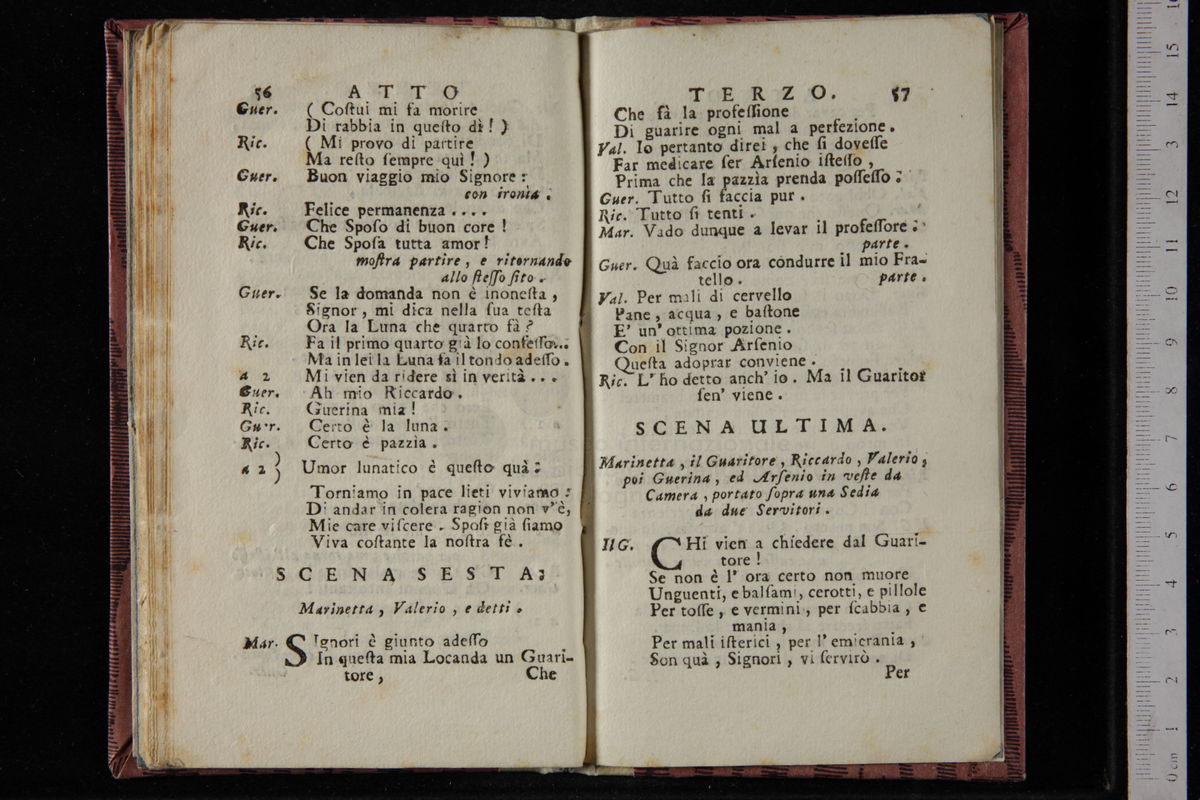 56 ATTO
Guer. ( Coſtui mi fa morire
Di rabbia in queſto dì ! )
Ric. ( Mi provo di partire
Ma reſto ſempre quì ! )
Guer. Buon viaggio mio Signore :
con ironìa .
Ric. Felice permanenza . . . .
Guer. Che Spoſo di buon core !
Ric. Che Spoſa tutta amor !
moſtra partire , e ritornando
allo ſteſſo ſito .
Guer. Se la domanda non è inoneſta ,
Signor , mi dica nella ſua teſta
Ora la Luna che quarto fà ?
Ric. Fa il primo quarto già lo confeſſo...
Ma in lei la Luna fa il tondo adeſſo .
a 2 Mi vien da ridere sì in verità . . .
Guer. Ah mio Riccardo .
Ric. Guerina mia !
Guer. Certo è la luna .
Ric. Certo è pazzìa .
a 2 ) Umor lunatico è queſto quà :
Torniamo in pace lieti viviamo :
Di andar in colera ragion non v'è,
Mie care viſcere . Spoſi già ſiamo
Viva coſtante la noſtra fè .
SCENA SESTA :
Marinetta , Valerio , e detti .
Mar. SIgnori è giunto adeſſo
In queſta mia Locanda un Guari-
tore , Che
TERZO. 57
Che fà la profeſſione
Di guarire ogni mal a perfezione .
Val. Io pertanto direi , che ſi doveſſe
Far medicare ſer Arſenio iſteſſo ,
Prima che la pazzìa prenda poſſeſſo :
Guer. Tutto ſi faccia pur .
Ric. Tutto ſi tenti .
Mar. Vado dunque a levar il profeſſore :
parte .
Guer. Quà faccio ora condurre il mio Fra-
tello . parte .
Val. Per mali di cervello
Pane , acqua , e baſtone
E' un' ottima pozione .
Con il Signor Arſenio
Queſta adoprar conviene .
Ric. L' ho detto anch' io . Ma il Guaritor
ſen' viene .
SCENA ULTIMA.
Marinetta , il Guaritore , Riccardo , Valerio ,
poi Guerina , ed Arſenio in veſte da
Camera , portato ſopra una Sedia
da due Servitori .
Il G. CHi vien a chiedere dal Guari-
tore !
Se non è l' ora certo non muore
Unguenti, e balſami, cerotti, e pillole
Per toſſe , e vermini , per ſcabbia , e
mania ,
Per mali iſterici , per l' emicrania ,
Son quà , Signori , vi ſervirò .
Per